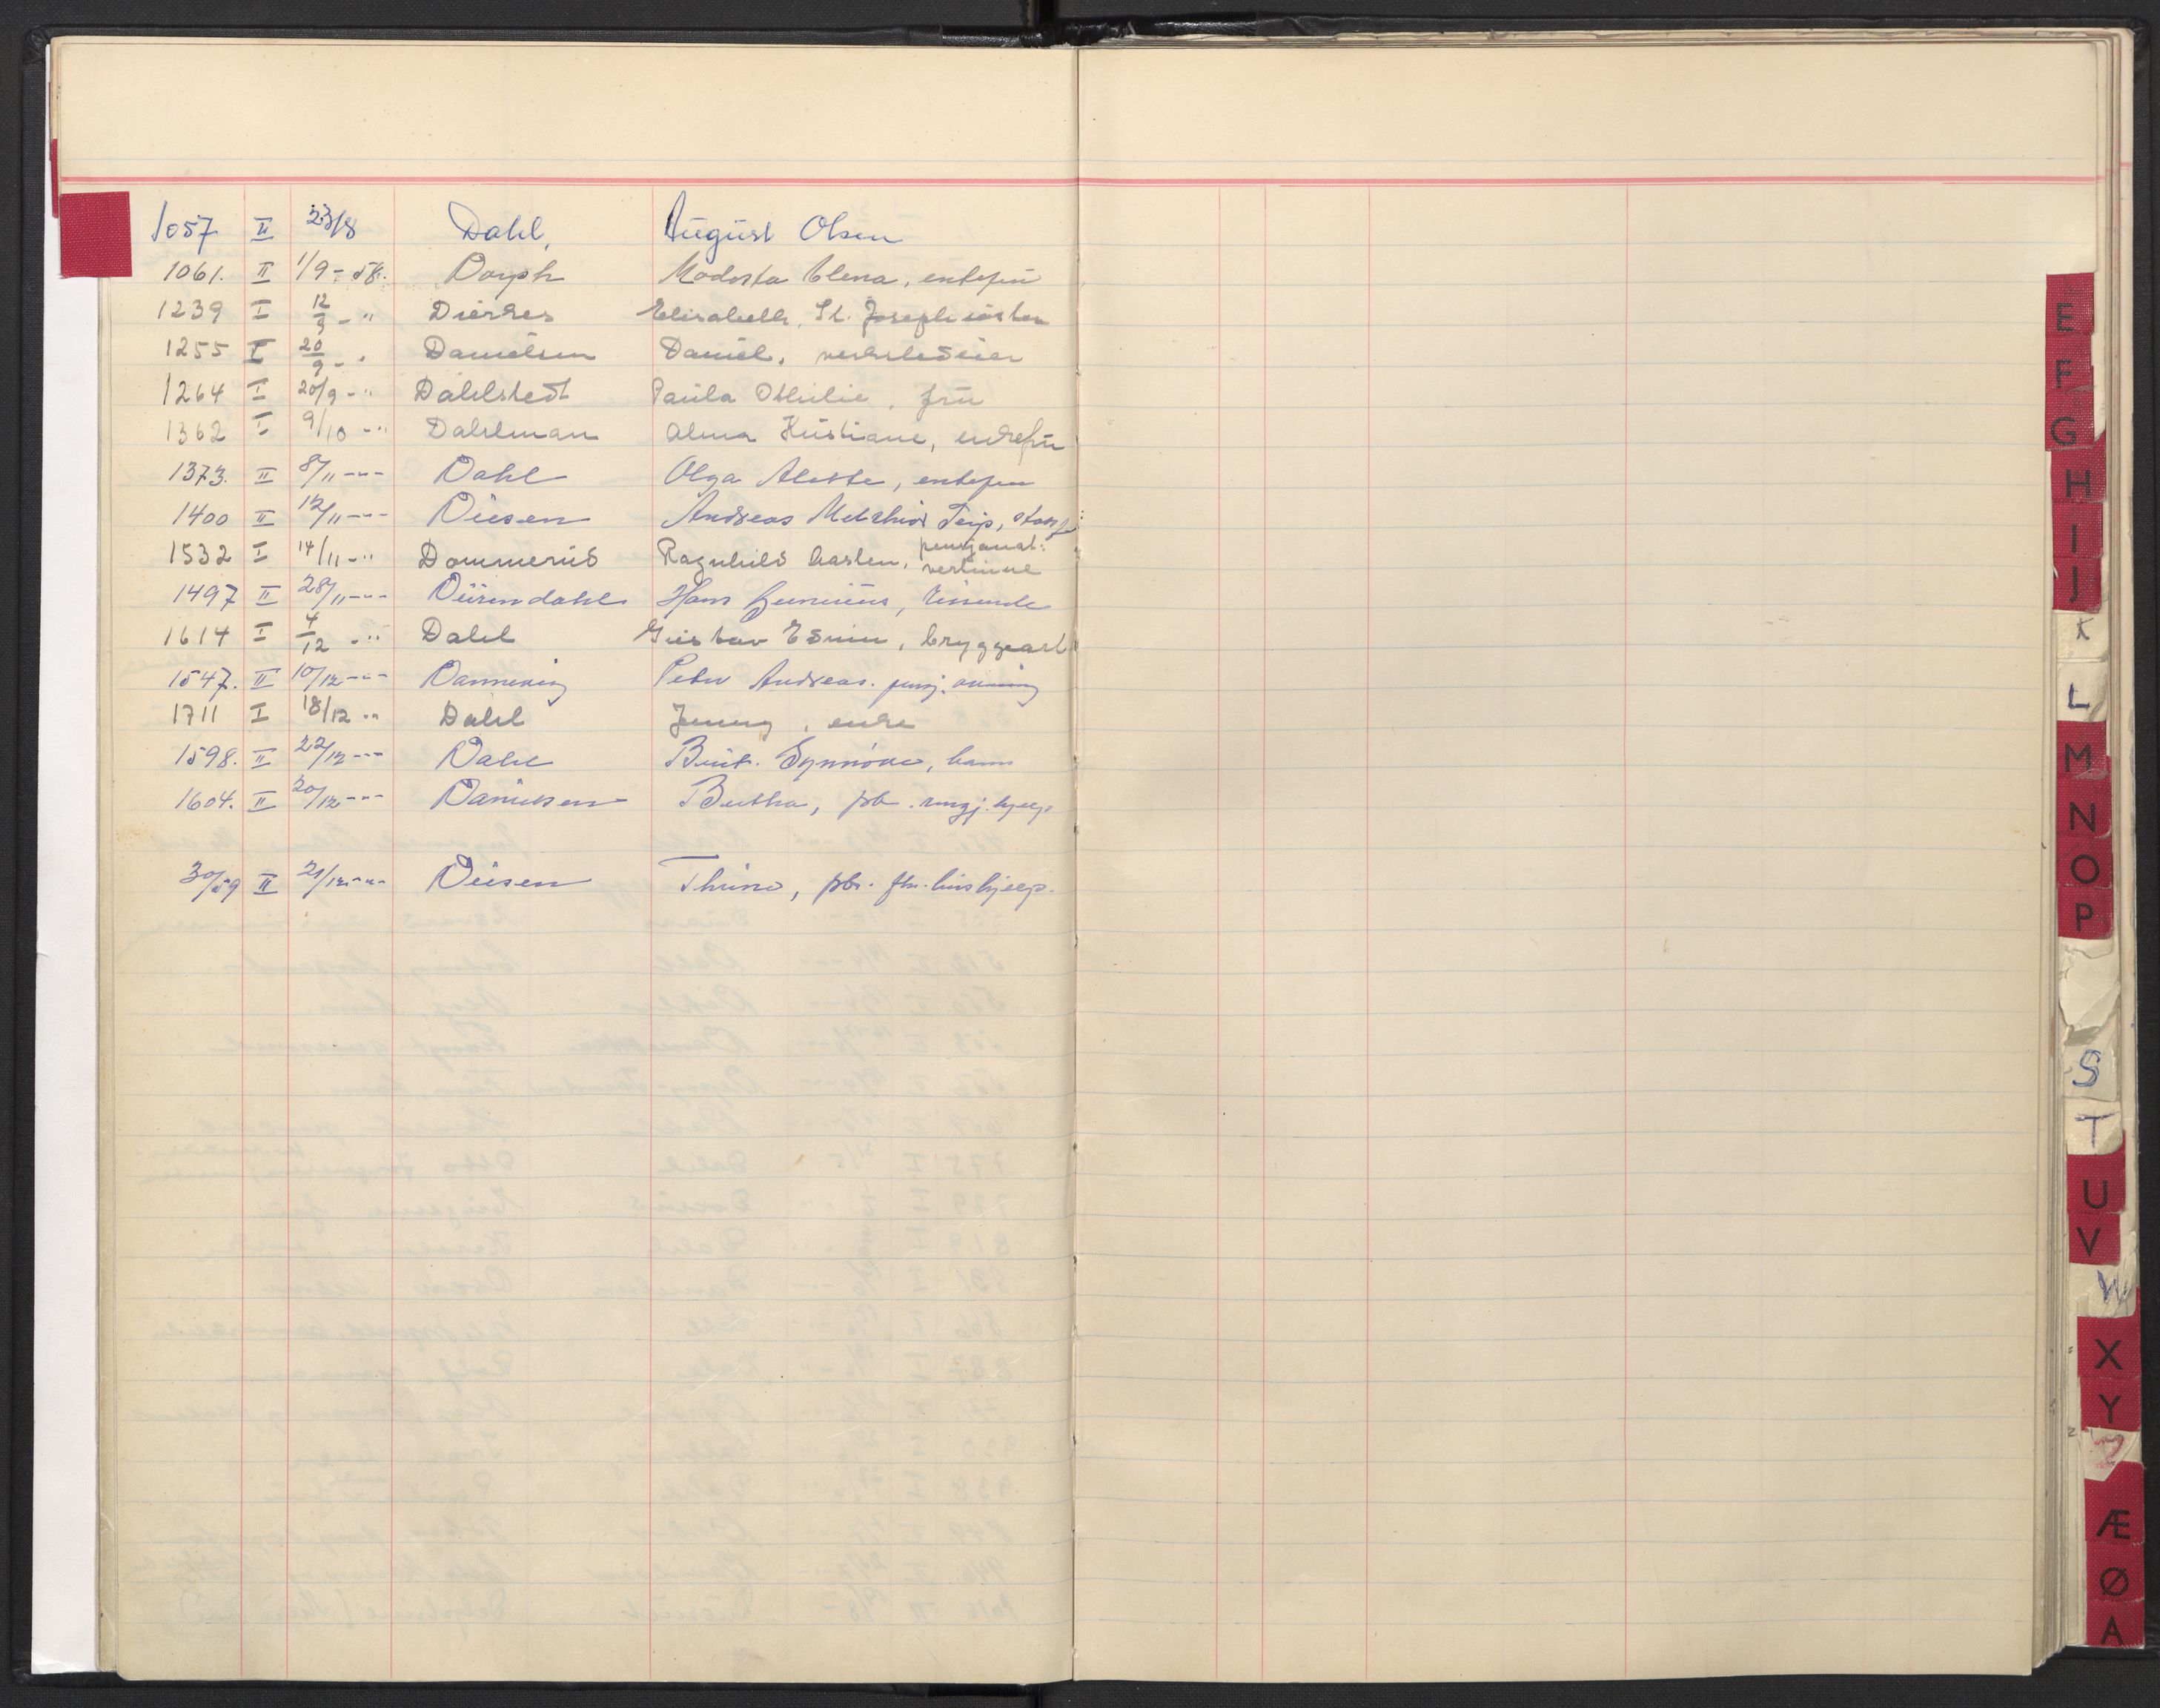 1057 II 23/8 Dahl, August Olsen
1061. II 1/9-58. Dorph Modesta Elena, enkefru
1239 I 12/9 - " Dierkes Elisabeth, St. Josephsøster
1255 I 20/9 - " Danielsen Daniel, verkstedeier
1264 I 20/9 - " Dahlstedt Paula Othilie, fru
1362 I 9/10 - " Dahlman Alma Kristiane, enkefru
1373. II 8/11 - " - Dahl Olga Alette, enkefru
1400 II 12/11 - " - Diesen Andreas Melchior
1532 I 14/11 - " Dommerud Ragnhild Karlen, pensjonat-
vertinne
1497 II 28/11 - " - Dürendahl Hans
1614 I 4/12 - " Dahl Gustav Edvin, bryggearb
1547. II 10/12 - " - Dannevig Peter Andreas. pensj.
1711 I 18/12 - " Dahl Jenny, enke
1598. II 22/12 - " - Dahl Berit Synnöve, barn
1604. II 20/12 - " - Danielsen Bertha, rengj. hjelp
30/59 II 21/12 - " - Diesen Thrine, fhv. hushjelp.
E
F
G
H
I
J
K
L
M
N
O
P
S
T
U
V
W
X
Y
Z
Æ
Ø
A